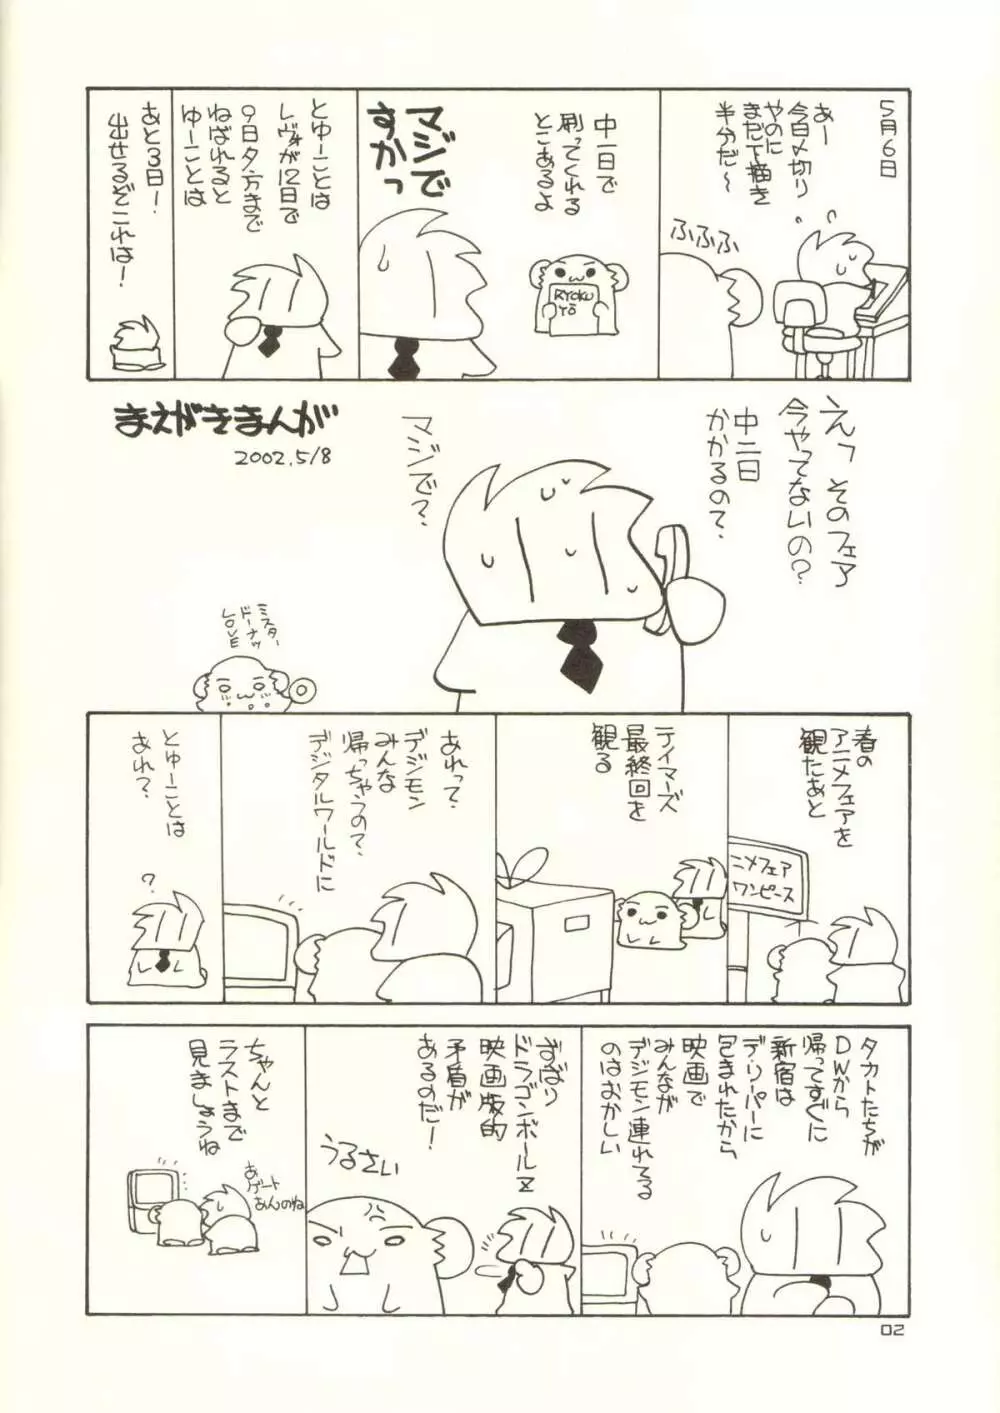 5月6日
あー
今日〆切り
やのに
まだ下描き
半分だ〜
ふふふ
中一日で
刷ってくれる
とこあるよ
RYOKU
YŌ
マジで
すかっ
とゆーことは
レヴォが12日で
9日夕方まで
ねばれると
ゆーことは
あと3日!
出せるぞこれは!
まえがきまんが
2002.5/8
えっ そのフェア
今やってないの?
中二日
かかるの?
マジで?
ミスター
ドーナッツ
LOVE
春の
アニメフェアを
観たあと
ニメフェア
ワンピース
テイマーズ
最終回を
観る
あれって?
デジモン
みんな
帰っちゃうの?
デジタルワールドに
とゆーことは
あれ?
?
タカトたちが
DWから
帰ってすぐに
新宿は
デ・リーパーに
包まれたから
映画で
みんなが
デジモン連れてる
のはおかしい
ずばり
ドラゴンボールZ
映画版的
矛盾が
あるのだ!
うるさい
ちゃんと
ラストまで
見ましょうね
あ
ゲート
あんのね
02